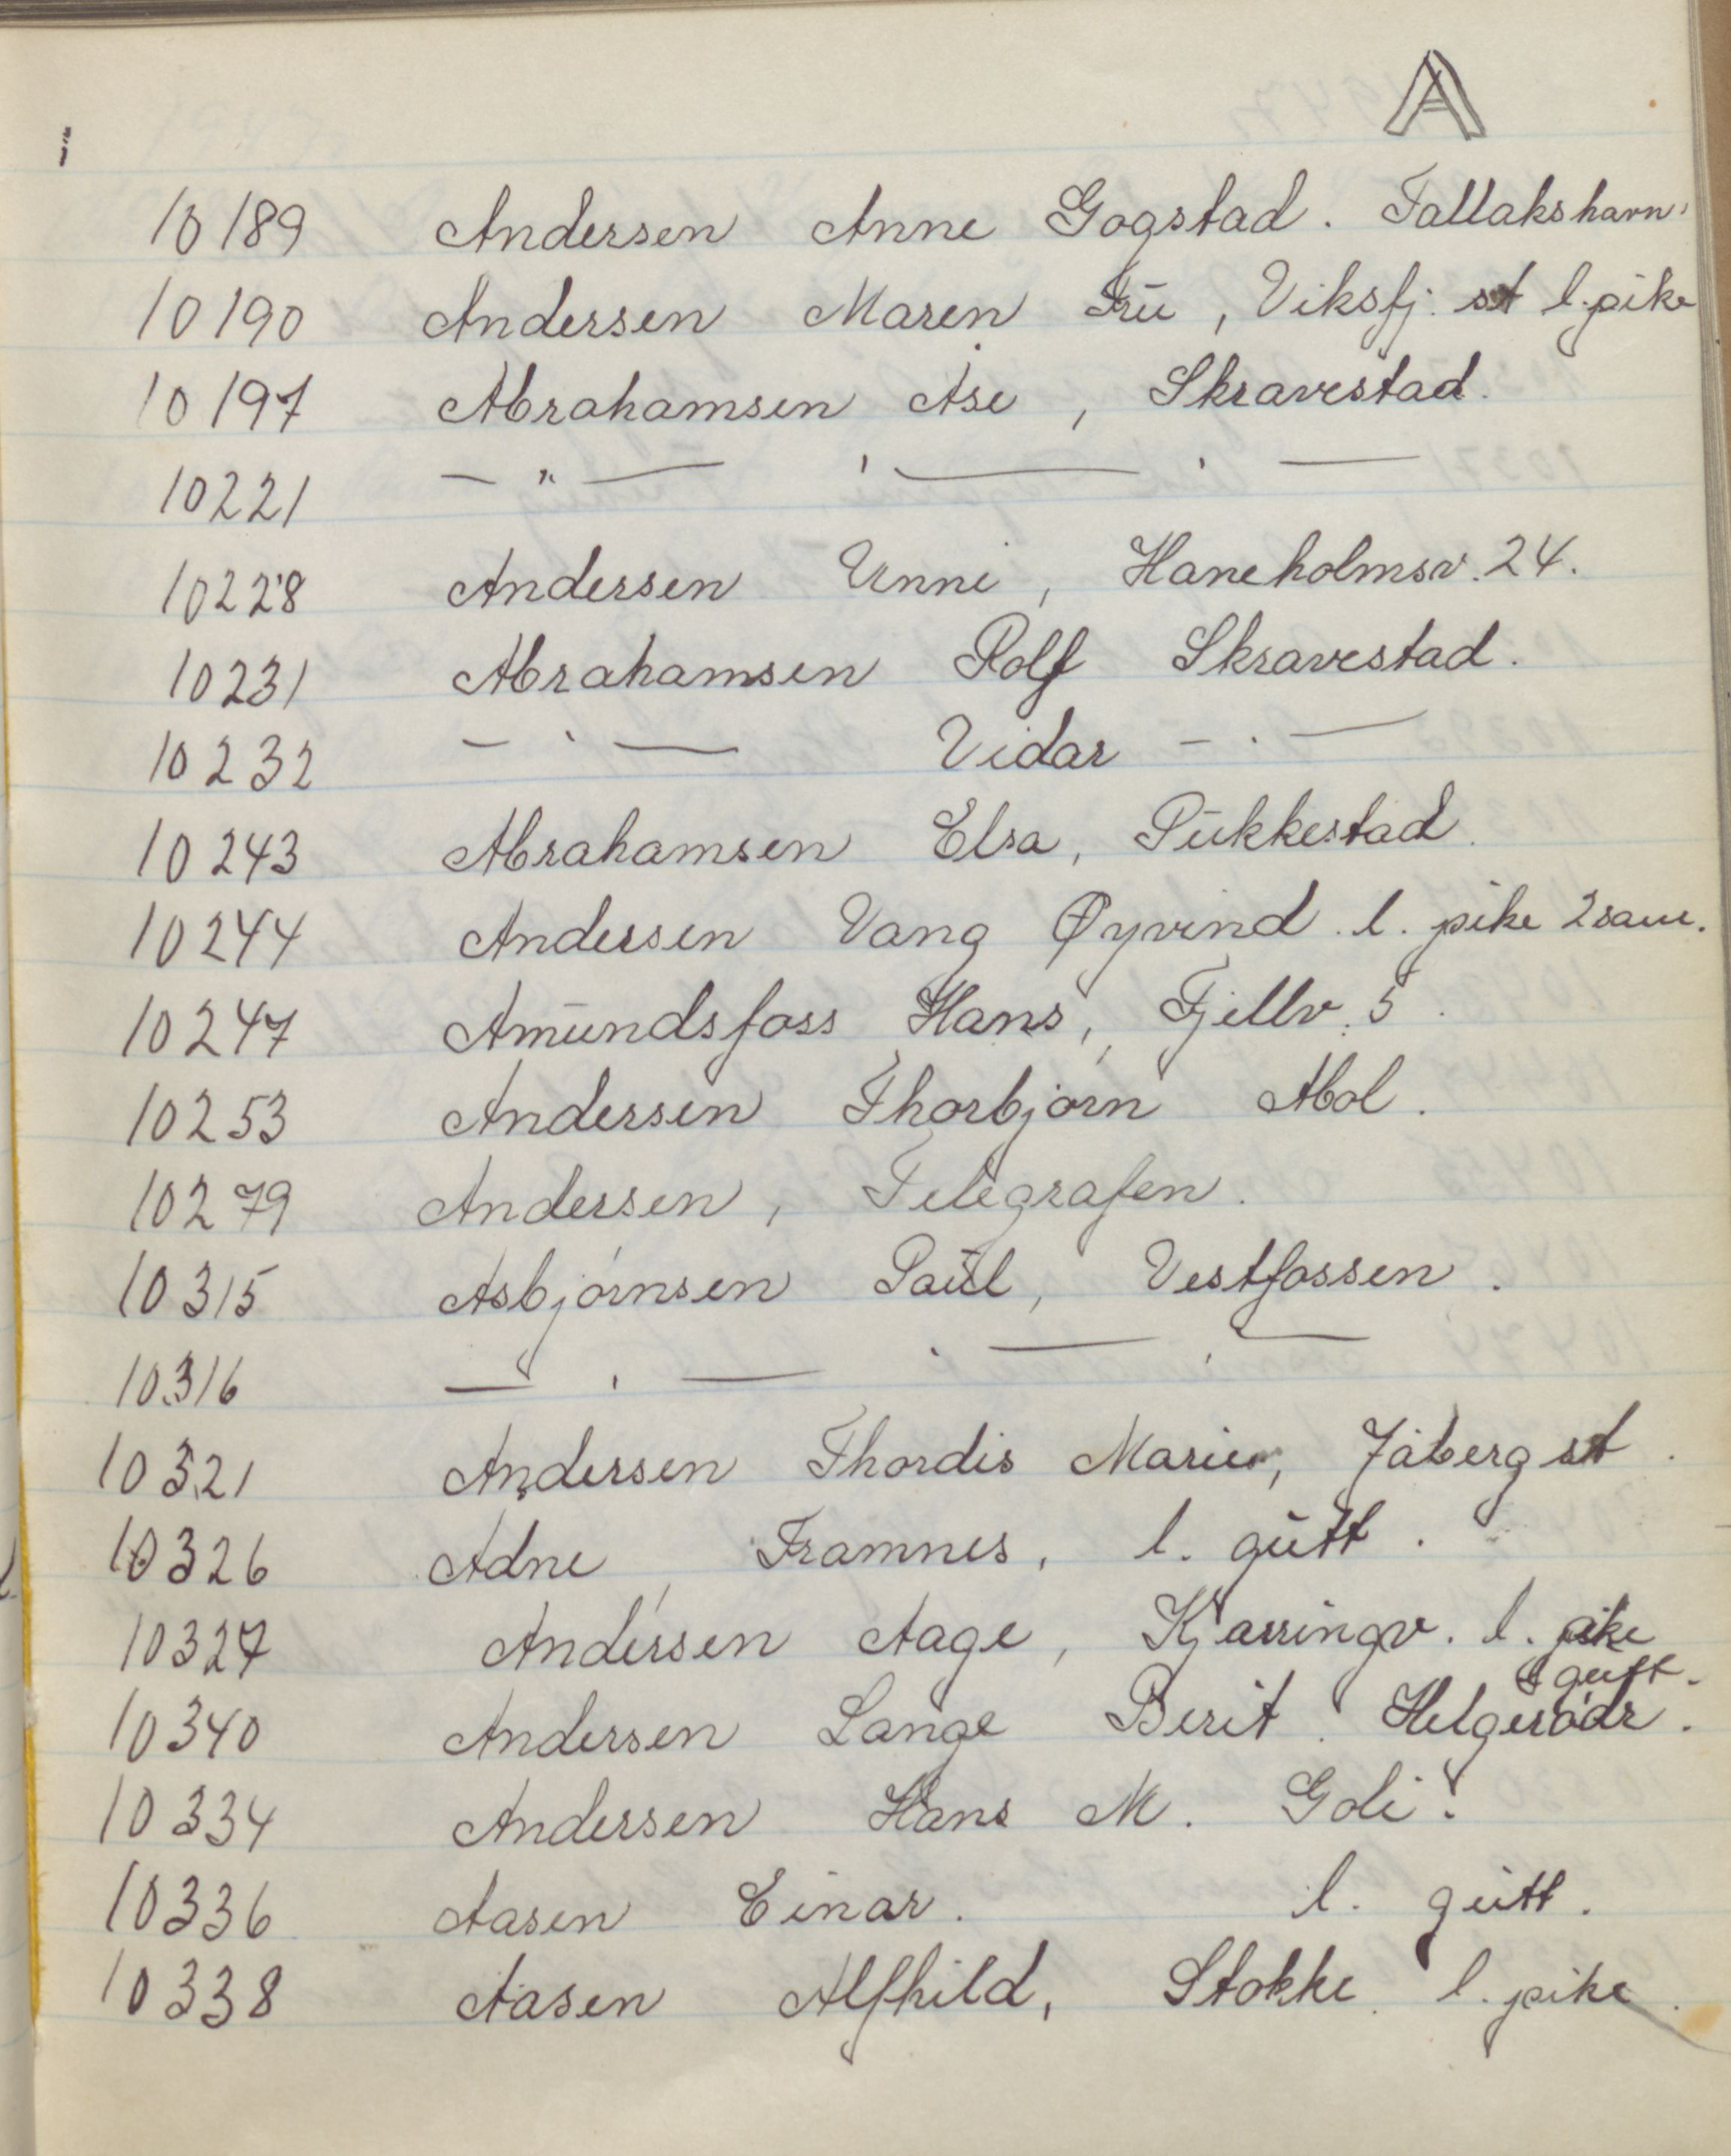 A
10189 Andersen Anne Gogstad. Tallakshavn.
10190 Andersen Maren Frü, Viksfj. st l. pike
10197 Abrahamsen Åse, Skravestad.
10221 — " — ' — ' —
10228 Andersen Unni, Haneholmsv. 24.
10231 Abrahamsen Rolf Skravestad.
10232 — " — Vidar — " —
10243 Abrahamsen Elsa, Pükkestad.
10244 Andersen Vang Øyvind. l. pike 2 sam.
10247 Amündsfoss Hans, Fjellv. 5.
10253 Andersen Thorbjørn Abol.
10279 Andersen, Telegrafen.
10315 Asbjørnsen Paül, Vestfossen.
10316 — ' — ' — ' —
10321 Andersen Thordis Marie, Jåberg st.
10326 Adne, Framnes, l. gütt.
10327 Andersen Aage, Kjærringv. l. pike
gutt.
10340 Andersen Lange Berit. Helgerødr.
10334 Andersen Hans M. Goli.
10336 Aasen Einar. l. gütt.
10338 Aasen Alfhild, Stokke. l. pike.